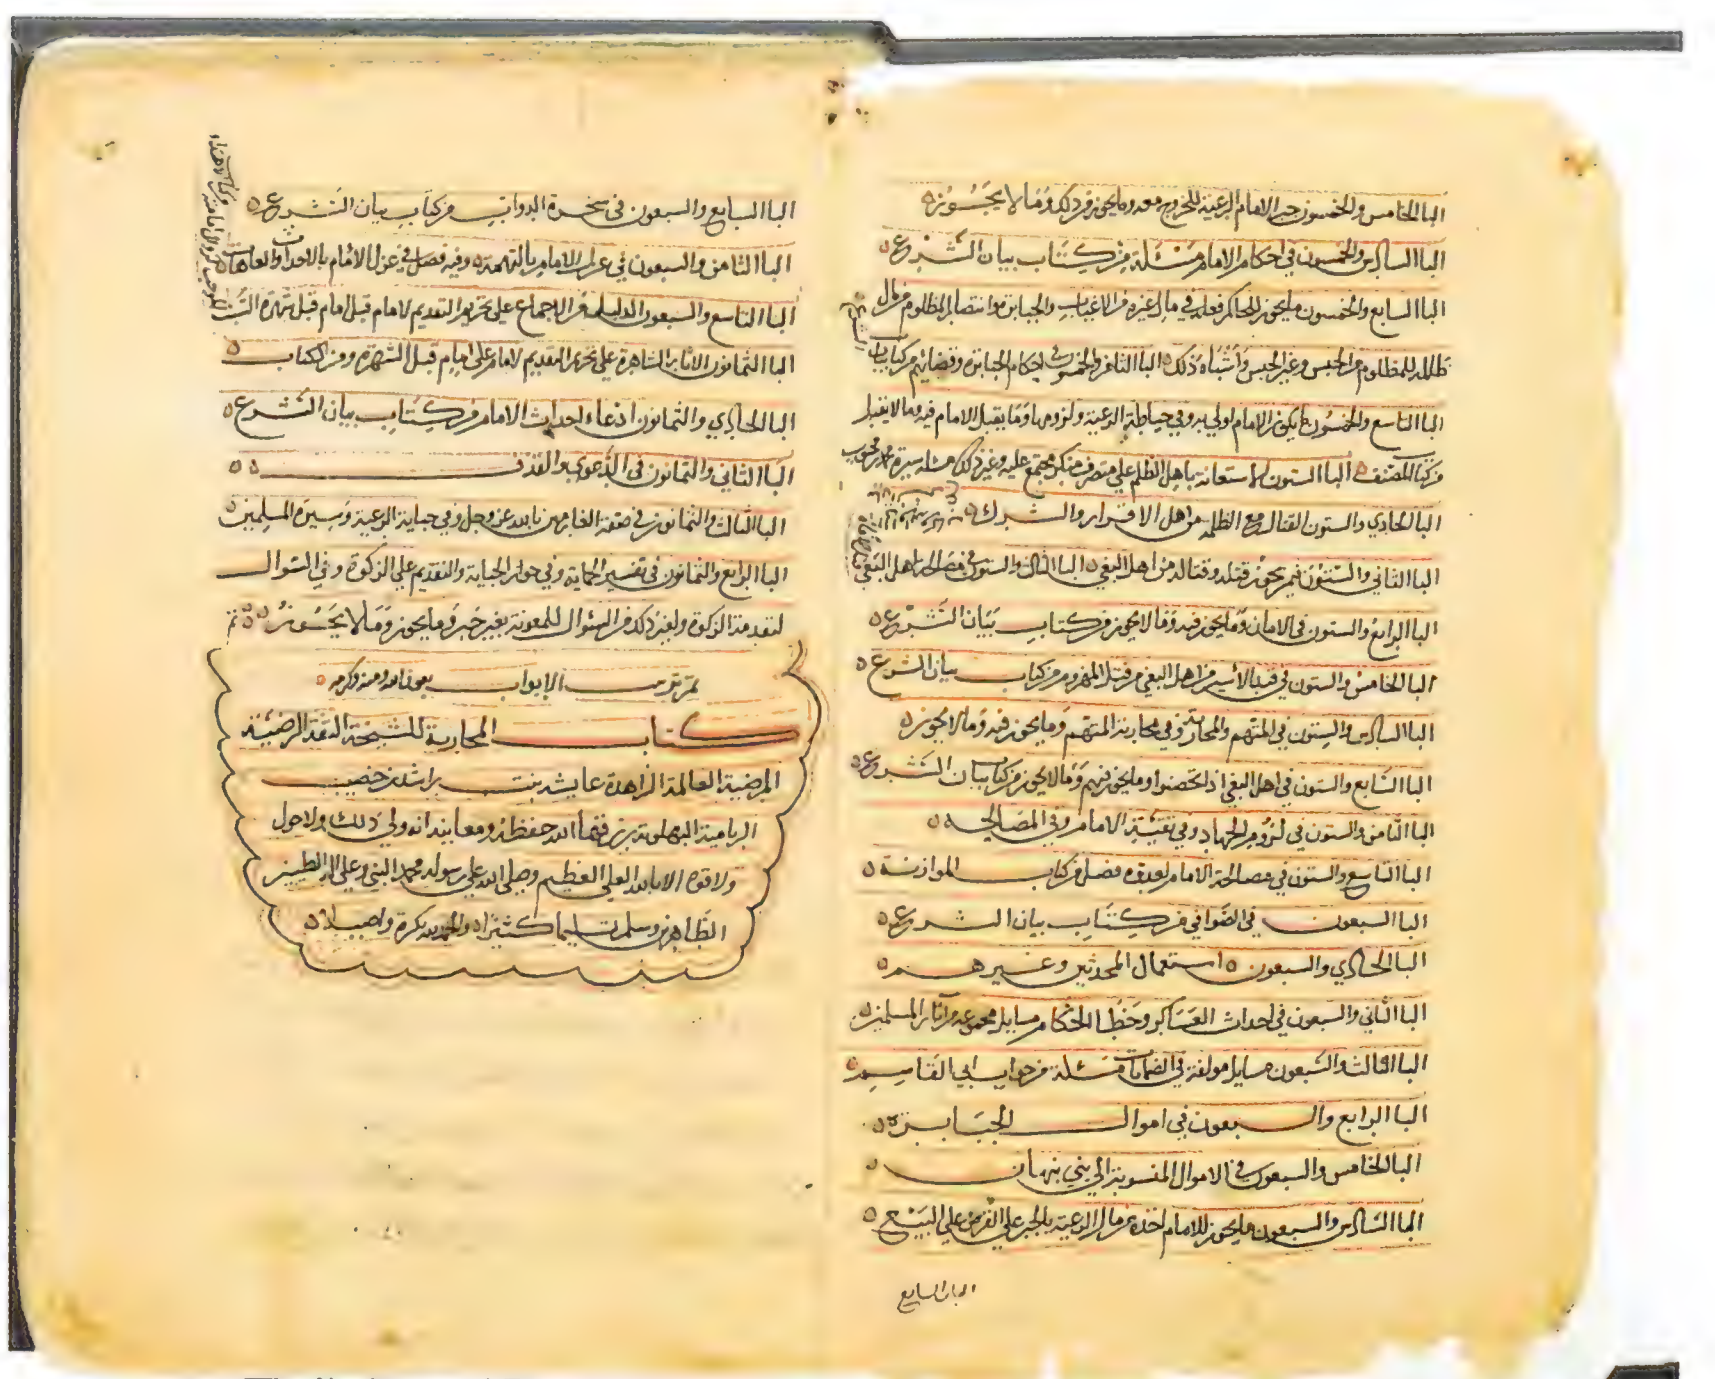 الباب الخامس والخمسون جبر الامام الرعية للخروج معه وما يجوز من ذلك وما لا يجوز
الباب السادس والخمسون في احكام الامام مسئلة من كتاب بيان الشرع
الباب السابع والخمسون ما يجوز للحاكم فعله في مال غيره من الاغياب والجبابرة وانتصار المظلوم من مال
ظالمه للمظلوم من الحبس وغير الحبس واشباه ذلك الباب الثامن والخمسون في احكام الجبابرة وقضاياهم من كتاب بيان
الباب التاسع والخمسون ما يكون الامام اولى به وفي حياطة الرعية ولزومها وما يقبل الامام فيه وما لا يقبل
من كتاب المصنف الباب الستون الاستعانة باهل الظلم على متصرف منكر مجتمع عليه وغير ذلك مسئلة سيرة محمد بن محبوب
الباب الحادي والستون القتال مع الظلمة من اهل الاقرار والشرك
الباب الثاني والستون فيمن يجوز قتله وقتاله من اهل البغي الباب الثالث والستون في اهل البغي
الباب الرابع والستون في الامان وما يجوز فيه وما لا يجوز من كتاب بيان الشرع
الباب الخامس والستون في قتل الأسير من اهل البغي من قتل المنهزم من كتاب بيان الشرع
الباب السادس والستون في المتهم والمحاربة وفي محاربة المتهم وما يجوز فيه وما لا يجوز
الباب السابع والستون في اهل البغي اذا تحصنوا وما يجوز فيهم وما لا يجوز من كتاب بيان الشرع
الباب الثامن والستون في لزوم الجهاد وفي تقية الامام وفي المصالحه
الباب التاسع والستون في مصالحة الامام لعدوه فصل من كتاب الموازنة
الباب السبعون في الصوافي من كتاب بيان الشرع
الباب الحادي والسبعون استعمال المحدثين وغيرهم
الباب الثاني والسبعون في احداث العساكر وخطا الحكام مسايل مجموعه من آثار المسلمين
الباب الثالث والسبعون مسايل مولفة في الضمانات مسئلة من جواب ابي القاسم
الباب الرابع والسبعون في اموال الجبابرة
الباب الخامس والسبعون في الاموال المنسوبة الى بني نبهان
الباب السادس والسبعون ما يجوز للامام اخذه من مال الرعية بالجبر على القرض على البيع
الباب السابع
الباب السابع والسبعون في سخرة الدواب من كتاب بيان الشرع
الباب الثامن والسبعون في عزل الامام بالتهمة وفيه فصل في عزل الامام بالاحداث والعاهات
الباب التاسع والسبعون الدليل من الاجماع على تحريم التقديم لامام قبل امام قبل شهرة
الباب الثمانون الاثار الشاهرة على تحريم التقديم لامام على امام قبل الشهرة ومن الكتاب
الباب الحادي والثمانون ادعاء احداث الامام من كتاب بيان الشرع
الباب الثاني والثمانون في الدعوى والقذف
الباب الثالث والثمانون في صفة القايمين بالله عز وجل وفي جباية الرعية وسيرة المسلمين
الباب الرابع والثمانون في تفسير الحماية وفي جواز الجباية والتقديم على الزكوة وفي السوال
لتقدمة الزكوة ولغير ذلك من السؤال للمعونة بغير جبر وما يجوز وما لا يجوز تم
تم ترتيب الابواب بعون الله ومنه وكرمه
كتاب المحاربة للشيخة الثقة الرضية
المرضية العالمة الزاهدة عايشه بنت راشد بن خصيب
الريامية البهلوية رزقها الله حفظه ومعانيه انه ولي ذلك ولا حول
ولا قوة الا بالله العلي العظيم وصلى الله على رسوله محمد النبي وعلى اله الطيبين
الطاهرين وسلم تسليما كثيرا والحمد لله بكرة واصيلا